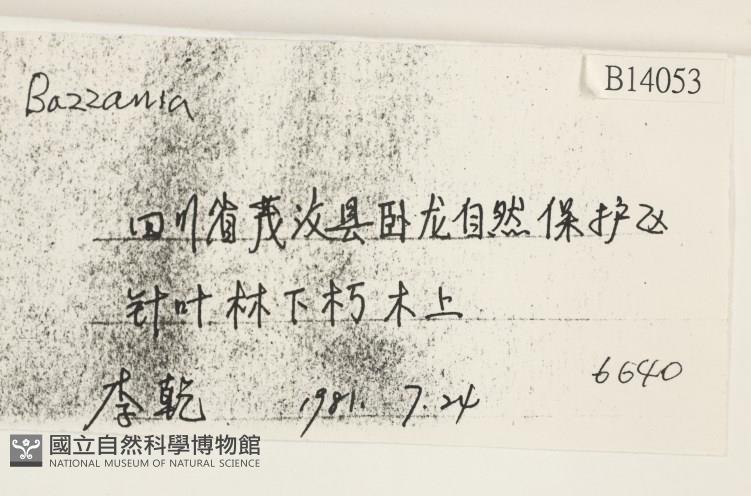 B14053
Bazzania
四川省茂汶县卧龙自然保护区
针叶林下朽木上
6640
李乾 1981. 7.24
國立自然科學博物館
NATIONAL MUSEUM OF NATURAL SCIENCE